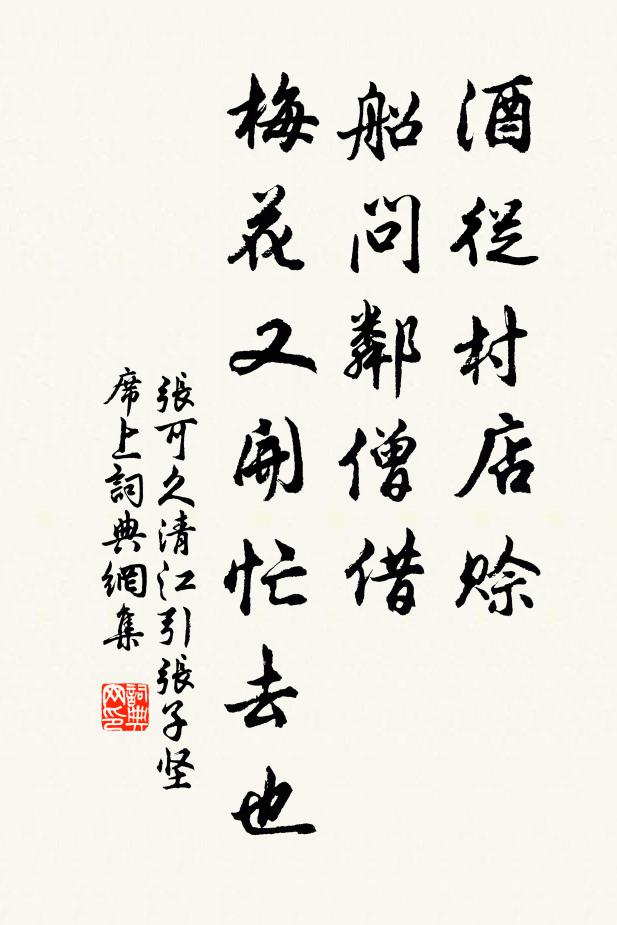 酒從村店賒
船問鄰僧借
梅花又開忙去也
張可久清江引張子坚
席上詞典網集
詞典网印